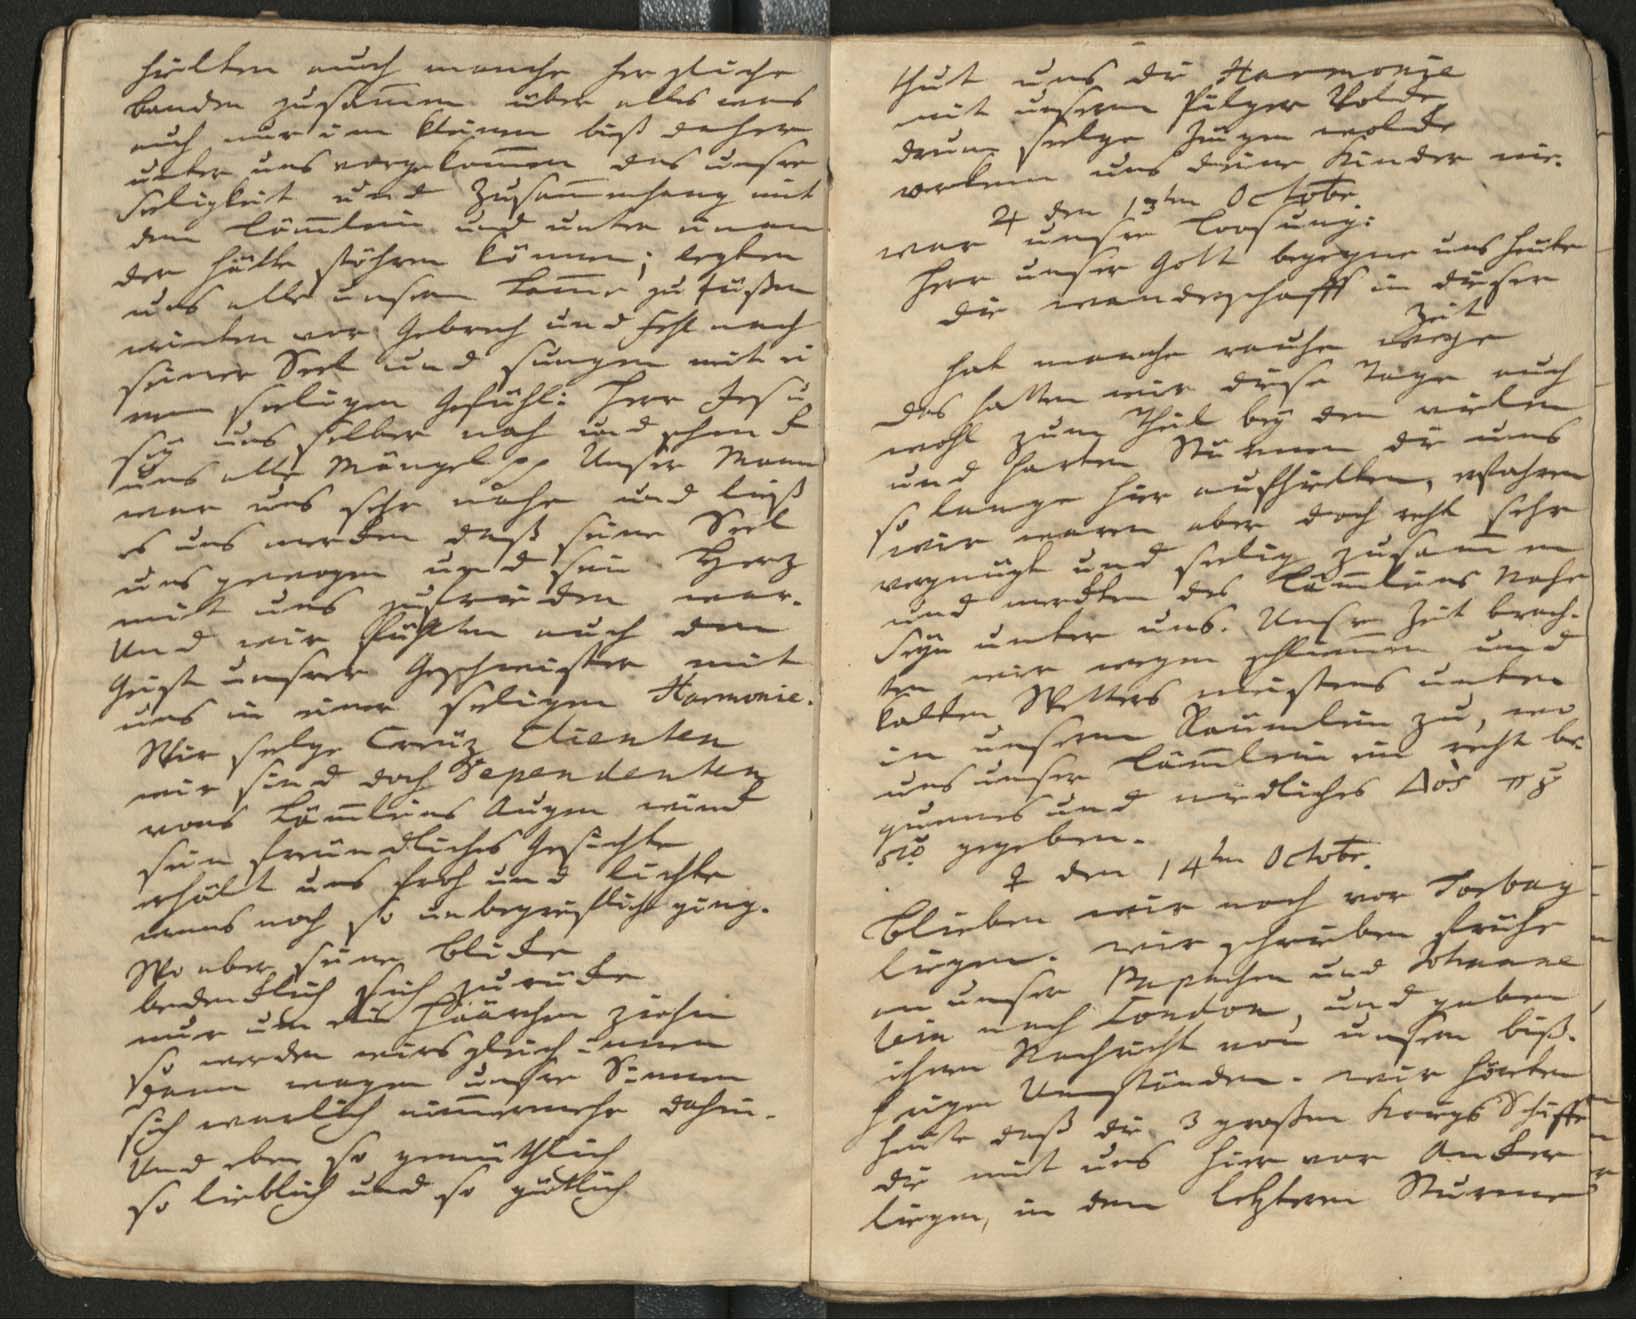 hielten auch manche herzliche
banden zusam̅en über alles was
auch nur im kleinen biß daher
unter uns vorgekom̅en das unsre
Seeligkeit und Zusam̅enhang mit
dem Läm̅lein und unter einan
der hätte stöhren können; legten
uns alle unserm Lam̅e zu füßen
weinten vor Gebrech und Fehl nach
seiner Seel und sungen mit ei
nem seeligen Gefühl: Herr Jesu
sey uns selber nah und schenck
uns alle Mängel pp Unser Mann
war uns sehr nahe und ließ
es uns mercken daß seine Seel
uns gewogen und sein Herz
mit uns zufrieden war.
Und wir fühlten auch den
Geist unsrer Geschwister mit
uns in einer seeligen Harmonie.
Wir selge Creuz Clienten
wir sind doch Dependenten
vons Läm̅leins Augen wind
sein freundliches Gesichte
erhält uns froh und lichte
wans noch so unbegreiflich ging.
Wo aber seine Blicke
bedencklich sich zurücke
nur um ein Häärchen ziehn
so werden wirs gleich innen
dann mögen unsre Sinnen
sich warlich nim̅ermehr dahin.
Und eben so gemüthlich
so lieblich und so gütlich
thut uns die Harmonie
mit unserm Pilger Volcke
drum selge Zeugen wolcke
verkenn uns deine Kinder nie.
♃ den 13ten Octobr.
war unsre Loosung:
Herr unser Gott begegne uns heute
die wanderschafft in dieser
Zeit
hat manche rauhe wege
das hatten wir diese Tage auch
wohl zum Theil bey den vielen
und harten Stürmen die uns
so lange hier aufhielten, erfahren
wir waren aber doch recht sehr
vergnügt und seelig zusam̅en
und merckten des Läm̅leins Nahe
seyn unter uns. Unsre Zeit brach-
ten wir wegen schlim̅en und
kalten Wetters meistens unten
in unserm Räumlein zu, wo
uns unser Läm̅lein ein recht be
quemes und niedliches
gegeben.
♀ den 14ten Octobr.
Blieben wir noch vor Torbay
liegen. wir schrieben frühe
an unser Papachen und Johanne
lein nach London, und gaben
ihnen Nachricht von unsern biß-
herigen Umständen. wir hörten
heute daß die 3 großen Kriegs Schiffe
die mit uns hier vor Ancker
liegen, in dem letzteren Sturme